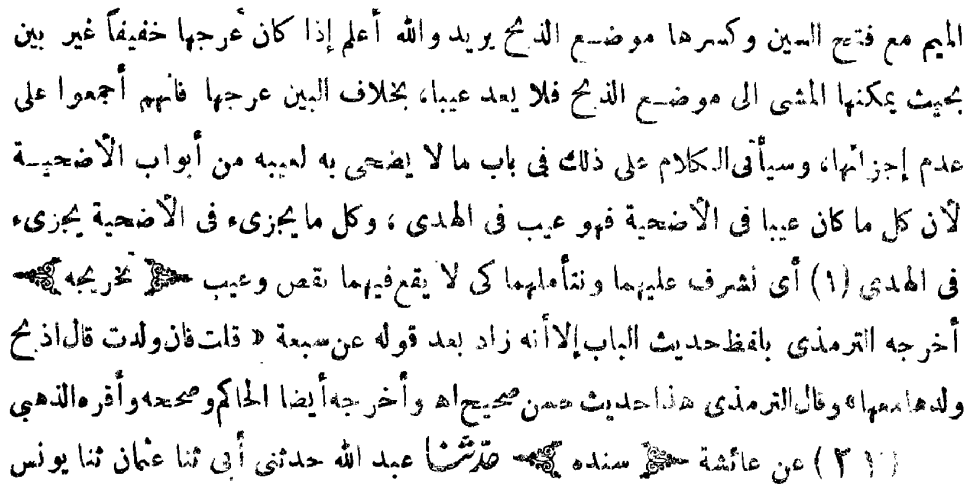 الميم مع فتح السين وكسرها موضع الذبح يريد والله أعلم إذا كان عرجها خفيفاً غير بين
بحيث يمكنها المشى الى موضع الذبح فلا يعد عيبا، بخلاف البين عرجها فانهم أجمعوا على
عدم إجزائها، وسيأتى الكلام على ذلك فى باب ما لا يضحى به لعيبه من أبواب الأضحية
لأن كل ما كان عيبا فى الأضحية فهو عيب فى الهدى ، وكل ما يجزىء فى الأضحية يجزىء
فى الهدى (١) أى نشرف عليهما ونتأملهما كى لا يقع فيهما نقص وعيب ﴿ تخريجه ﴾
أخرجه الترمذى بلفظ حديث الباب إلا أنه زاد بعد قوله عن سبعة « قلت فان ولدت قال اذبح
ولدها معها » وقال الترمذى هذا حديث حسن صحيح اه وأخرجه أيضا الحاكم وصححه وأقره الذهبي
عن عائشة ﴿ سنده ﴾ حدّثنا عبد الله حدثنى أبى ثنا عثمان ثنا يونس